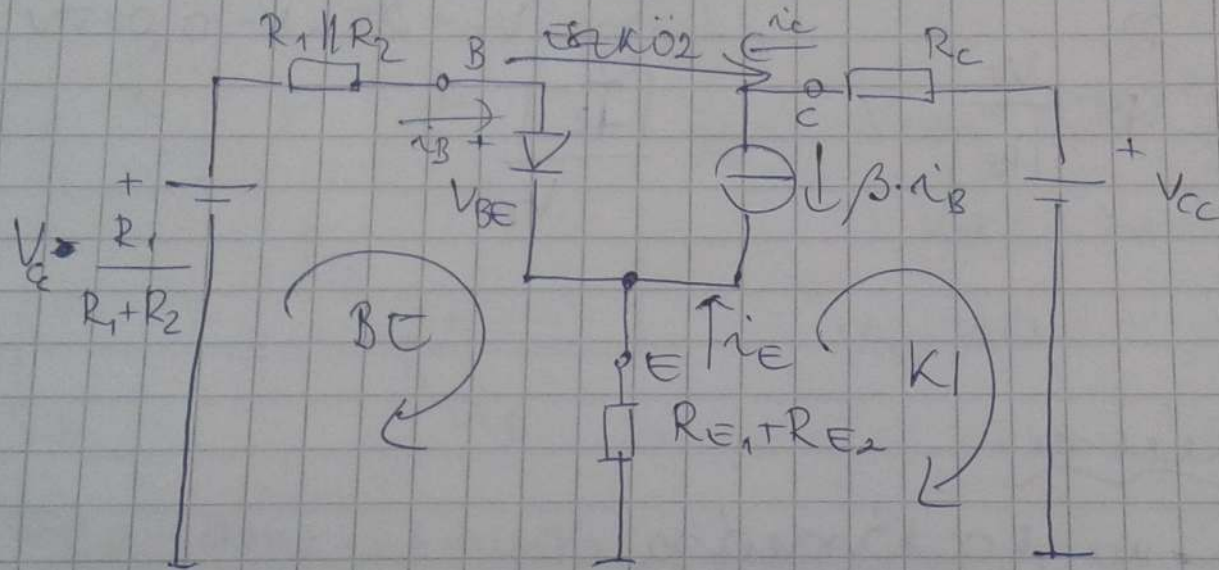 R₁||R₂
B
ESZKÖZ
i_C
R_C
C
i_B +
V_BE
β·i_B
+
V_CC
+
V_CC · R₁
R₁+R₂
BE
E
i_E
R_E₁+R_E₂
KI